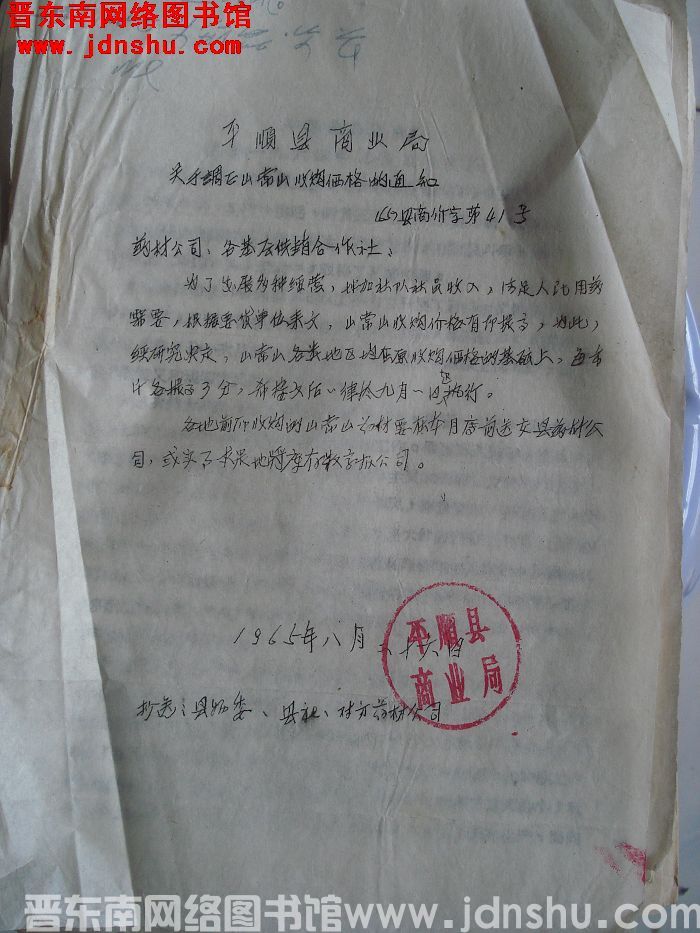 晋东南网络图书馆
www.jdnshu.com
平顺县商业局
关于调正山常山收购价格的通知
(65)县商价字第41号
药材公司、各基层供销合作社：
为了发展多种经营，增加社队社员收入，满足人民用药
需要，根据要货单位来文，山常山收购价格有所提高，为此，
经研究决定，山常山各类地区均在原收购价格的基础上，每市
斤各提高3分，希接文后一律于九月一日起执行。
各地前所收购的山常山药材要在本月底前送交县药材公
司，或实事求是地将库存数字报公司。
1965年八月二十六日
平顺县
商业局
抄送：县物委、县社、
药材公司
晋东南网络图书馆www.jdnshu.com